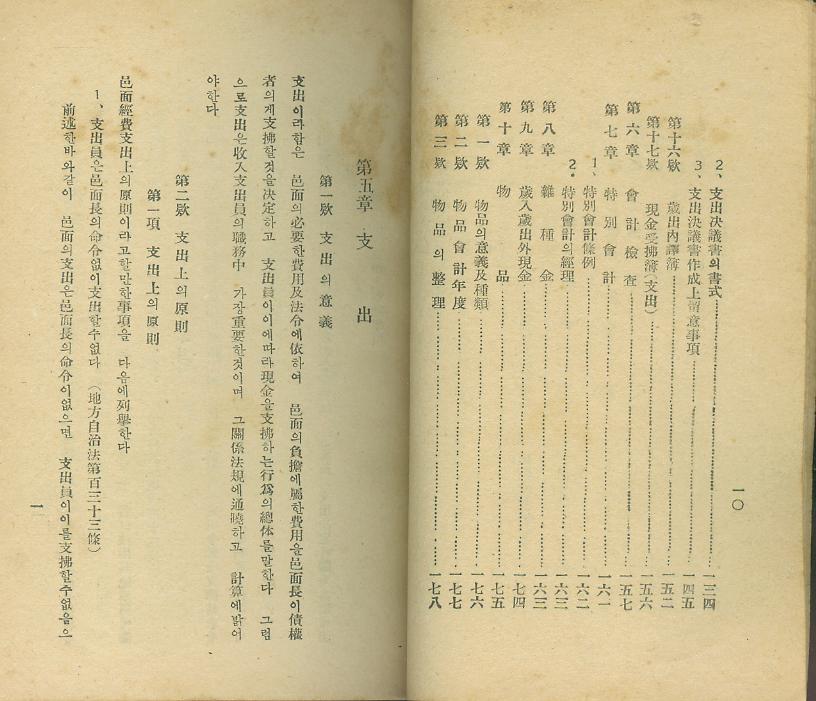 2、支出決議書의書式……一三四
3、支出決議書作成上留意事項……一四五
第十六欵 歲出內譯簿……一五二
第十七欵 現金受拂簿(支出)……一五六
第六章 會計檢査……一五七
第七章 特別會計……一六一
1、特別會計條例……一六二
2• 特別會計의經理……一六三
第八章 雜種金……一六三
第九章 歲入歲出外現金……一七四
第十章 物品……一七五
第一欵 物品의意義及種類……一七六
第二欵 物品會計年度……一七七
第三欵 物品의整理……一七八
一〇
第五章 支出
第一欵 支出의意義
支出이라함은 邑面의必要한費用及法令에依하여 邑面의負擔에屬한費用을邑面長이債權
者의게支拂할것을決定하고 支出員이이에따라現金을支拂하는行爲의總体를말한다 그럼
으로支出은收入支出員의職務中 가장重要한것이며 그關係法規에通曉하고 計算에밝어
야한다
第二欵 支出上의原則
第一項 支出上의原則
邑面經費支出上의原則이라고할만한事項을 다음에列擧한다
1、支出員은邑面長의命令없이支出할수없다 (地方自治法第百三十三條)
前述한바와같이 邑面의支出은邑面長의命令이없으면 支出員이이를支拂할수없음으
一